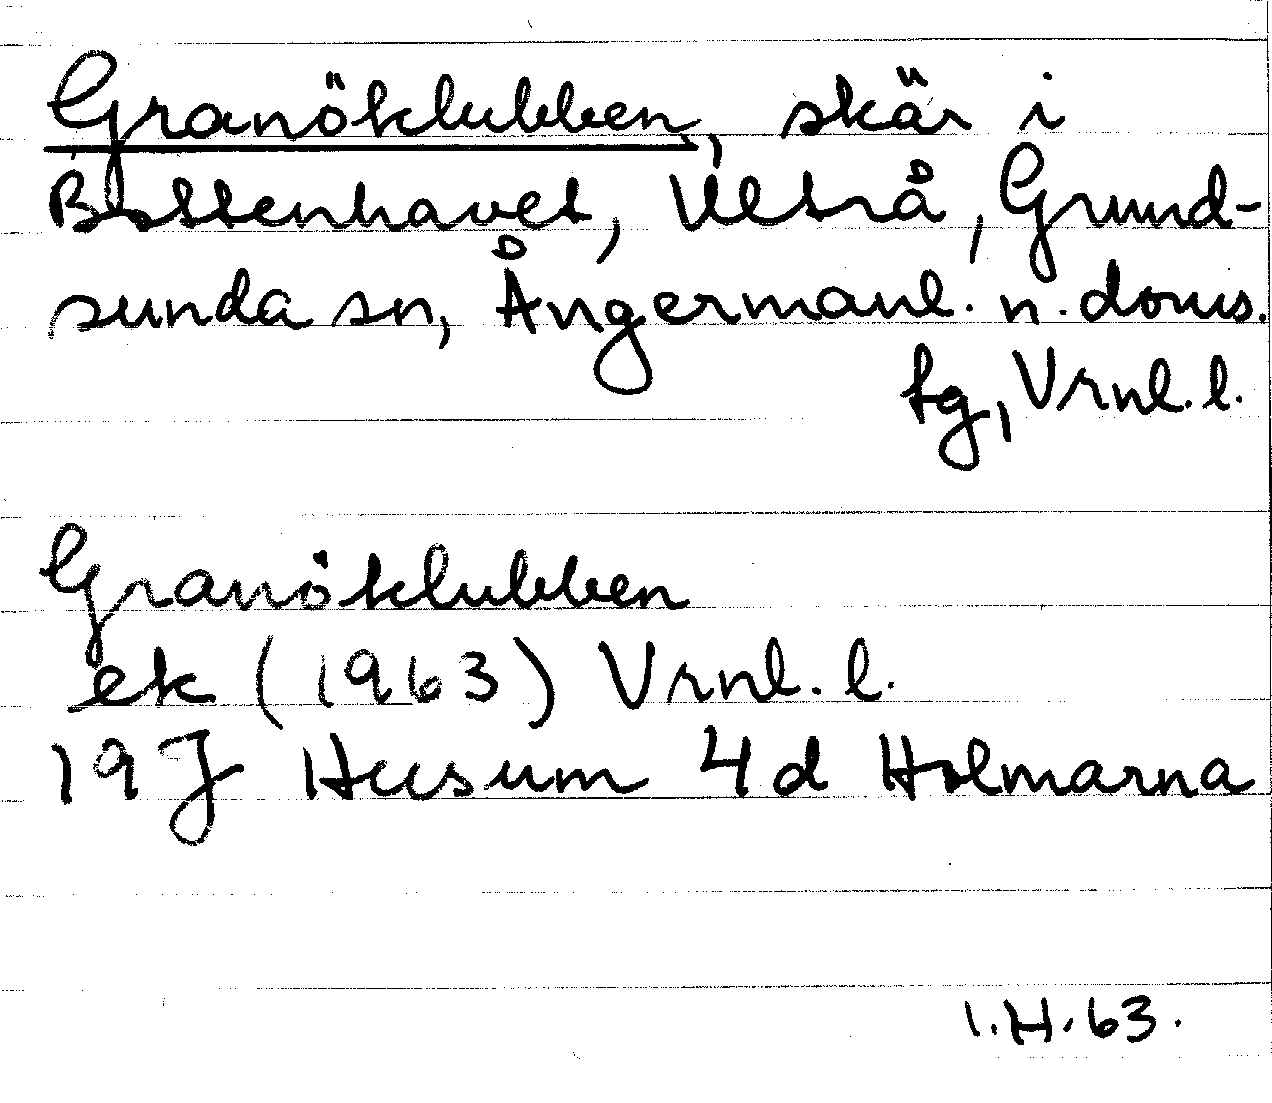 Granöklubben, skär i
Bottenhavet, Ulvtrå, Grund-
sunda sn, Ångermanl. n. doms.
fg, Vrnl. l.
Granöklubben
ek (1963) Vrnl. l.
19 J Husum 4 d Holmarna
I.H. 63.